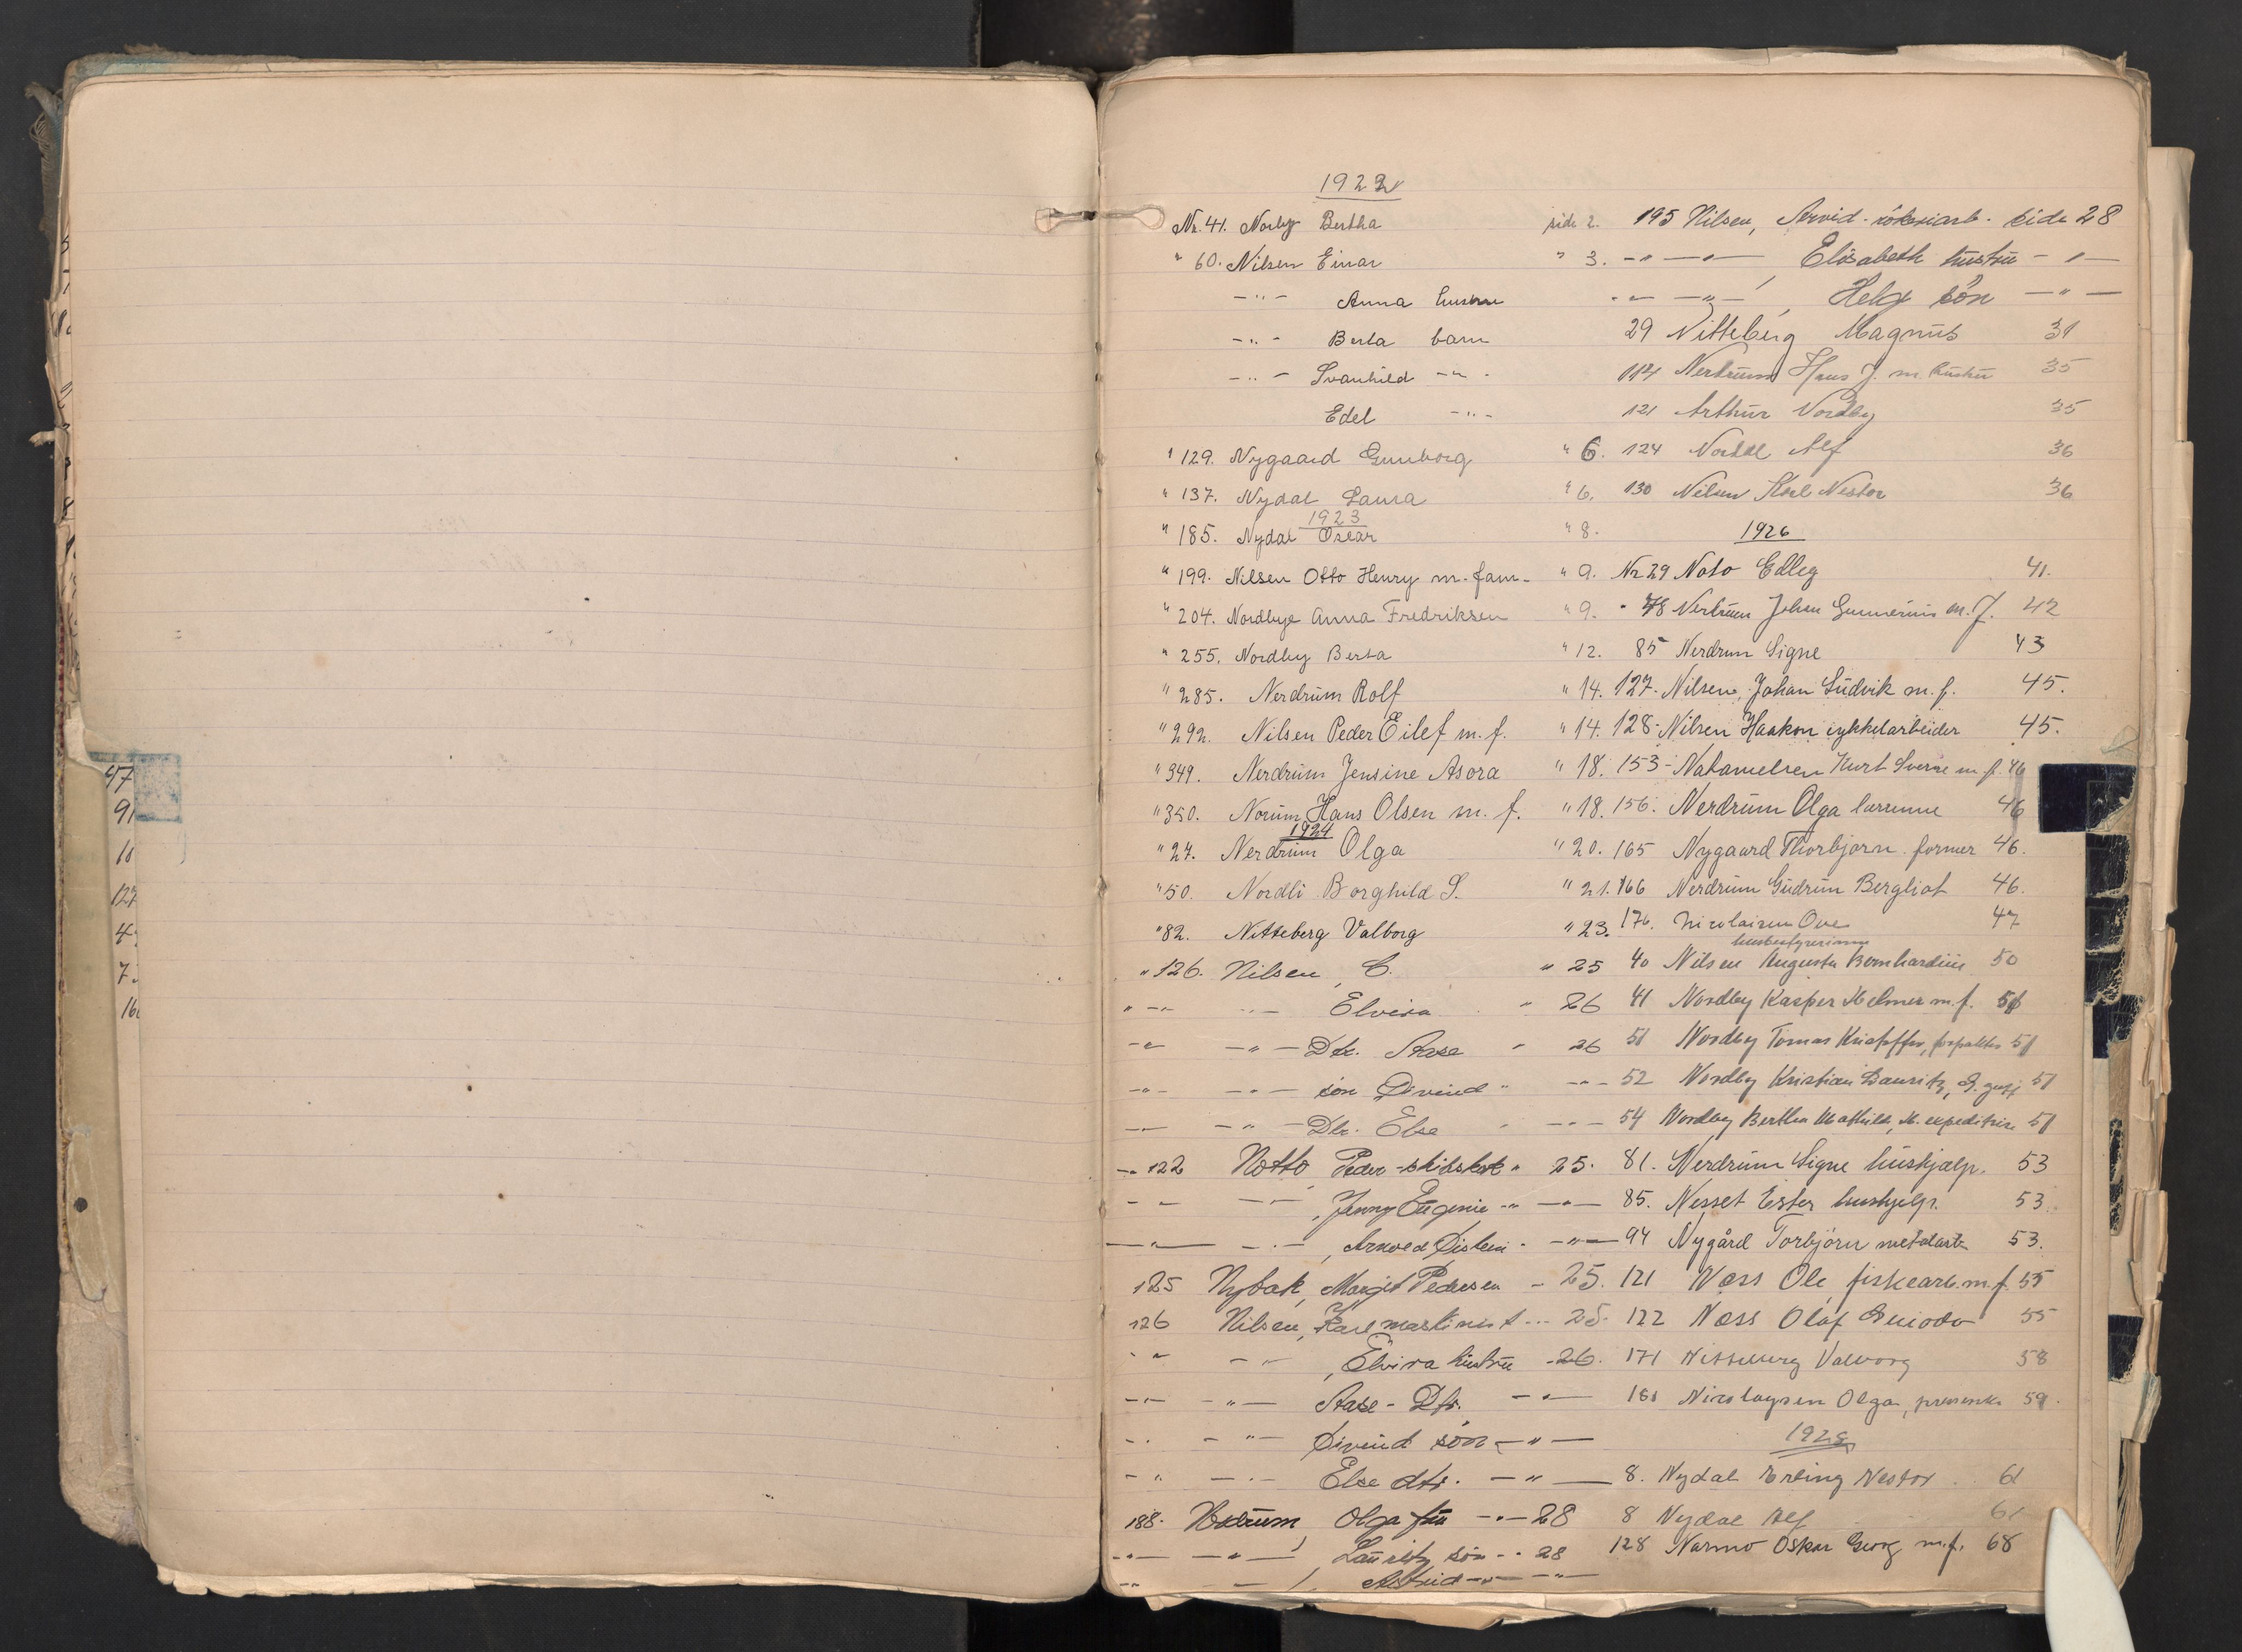 47
91
127
1922
Nr. 41. Norby Bertha side 2.
" 60. Nilsen Einar " 3.
-"- Anna hustru
-"- Berta barn
-"- Svanhild -"-
Edel -"-
" 129. Nygaard Gunborg " 6.
" 137. Nydal Laura " 6.
1923
" 185. Nydal Oscar " 8.
" 199. Nilsen Otto Henry m. fam- " 9.
" 204. Nordbye Anna Fredriksen " 9.
" 255. Nordby Berta " 12.
" 285. Nerdrum Rolf " 14.
" 292. Nilsen Peder Eilef m. f. " 14.
" 349. Nerdrum Jensine Asora " 18.
" 350. Norum, Hans Olsen m. f. " 18.
1924
" 27. Nerdrum Olga " 20.
" 50. Nordli Borghild S. " 21.
" 82. Nitteberg Valborg " 23.
" 126. Nilsen, C. " 25
" -"- -"- Elvira " 26
-"- -"- Dtr. Aase " 26
-"- -"- sön Öivind " -"-
-"- -"- Dtr. Else " -"-
-"- 122 Notto Peder " 25.
-"- -"- , Jenny Eugenie -"- -"-
-"- -"- , Arnold Öistein - -"-
125 Nybak, Margit Pedersen - 25.
126 Nilsen, Karl 25.
-"- -"- , Elvira hustru -26.
-"- -"- Aase - Dtr. -"-
-"- -"- Öivind sön -"-
-"- -"- Else dtr. -"-
188. Olga fru -"- 28
-"- -"- , Lauritz sön -"- 28
-"- -"- , Astrid -"- -"-
195 Nilsen, Arvid side 28
-"- -"- Elisabeth hustru -"-
-"- -"- , Helge sön -"-
29 Nitteberg Magnus 31
114 Nerdrum Hans J. m. hustru 35
121 Arthur Nordby 35
124 Nordal Alf 36
130 Nilsen Karl Nestor 36
1926
Nr 29 Noto Edleg 41.
- 78 Nerdrum Johan Gunnerius m. f. 42
85 Nerdrum Signe 43
127. Nilsen, Johan Ludvik m. f. 45.
128- Nilsen Haakon cykkelarbeider 45.
153- Natanielsen Kurt Sverre m f. 46
156. Nerdrum Olga lærerinne 46
165 Nygaard Thorbjørn. former 46.
166 Nerdrum Gudrun Bergliot 46.
176. Nicolaisen Ove 47
husbestyrerinne
40 Nilsen Augusta Bernhardine 50
41 Nordby Kasper Helmer m. f.
51 Nordby Tomas 51
52 Nordby Kristian Lauritz, 51
54 Nordby Bertha Mathilde, expeditrise 51
81. Nerdrum Signe huskjælp. 53
85. Nesset Ester hushjelp. 53
94 Nygård Torbjørn metalarb. 53.
121 Næss Ole, fiskearb. m. f. 55
122 Næss Olaf 55
171 Nitteberg Valborg 58
181 Nicolaysen Olga, 59.
1928
8. Nydal Erling Nestor 61
8 Nydal Alf 61
128 Narmo Oskar Georg m. f. 68